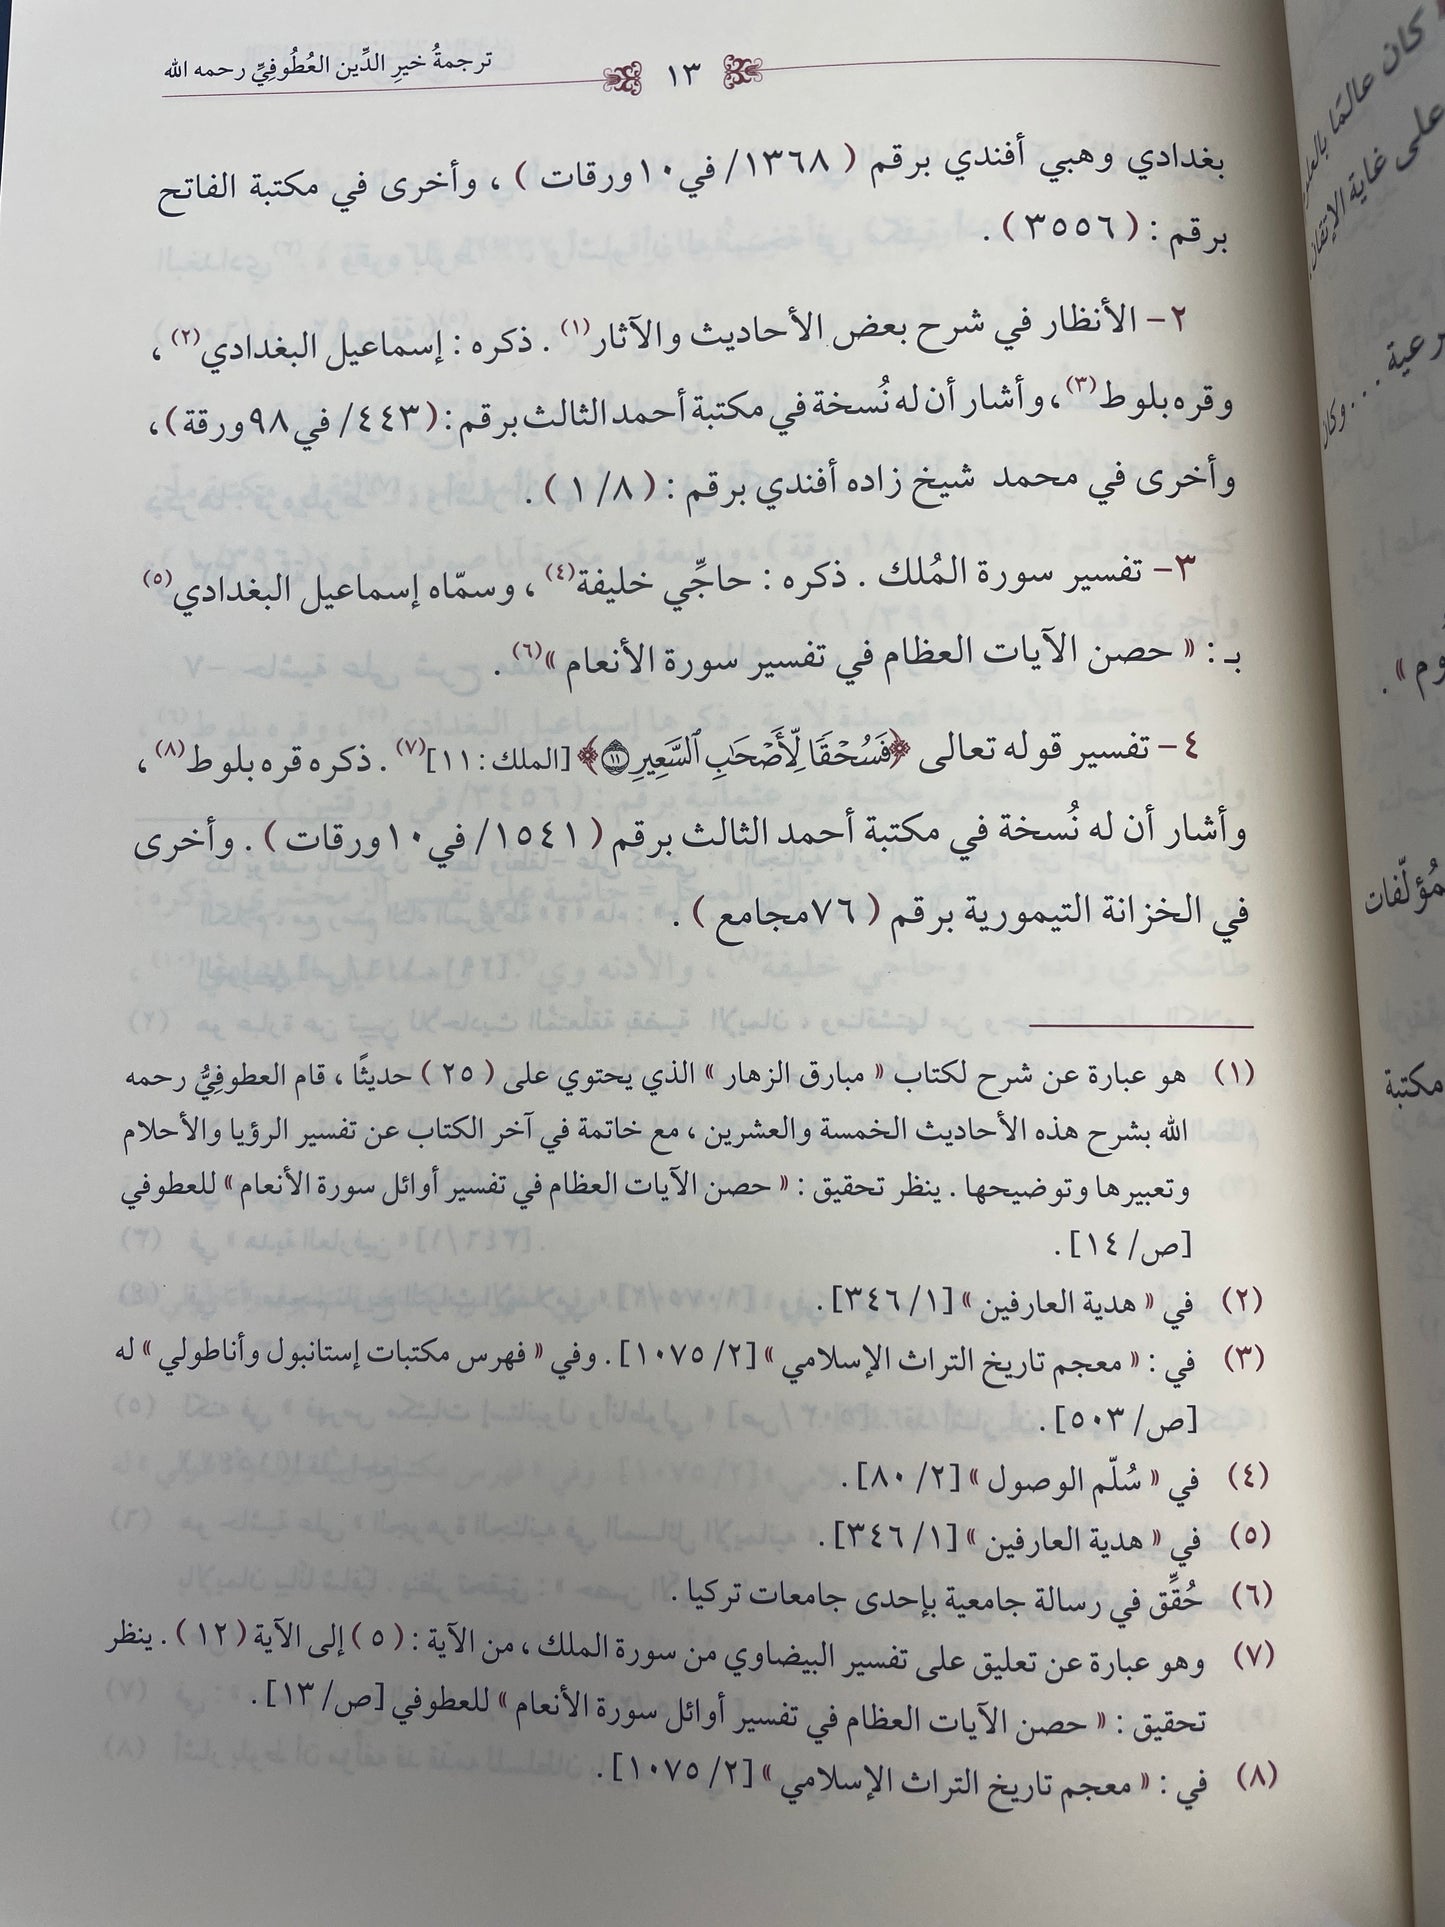 ترجمةُ خيرِ الدِّين العُطُوفِيِّ رحمه الله
١٣
بغدادي وهبي أفندي برقم ( ١٣٦٨/ في ١٠ ورقات ) ، وأخرى في مكتبة الفاتح
برقم : ( ٣٥٥٦ ) .
٢- الأنظار في شرح بعض الأحاديث والآثار(١) . ذكره : إسماعيل البغدادي(٢) ،
وقره بلوط(٣) ، وأشار أن له نُسخة في مكتبة أحمد الثالث برقم : ( ٤٤٣/ في ٩٨ ورقة ) ،
وأخرى في محمد شيخ زاده أفندي برقم : ( ٨/ ١ ) .
٣- تفسير سورة المُلك . ذكره : حاجِّي خليفة(٤) ، وسمّاه إسماعيل البغدادي(٥)
بـ : « حصن الآيات العظام في تفسير سورة الأنعام »(٦) .
٤- تفسير قوله تعالى ﴿فَسُحْقًا لِّأَصْحَٰبِ ٱلسَّعِيرِ ١١﴾ [الملك : ١١](٧) . ذكره قره بلوط(٨) ،
وأشار أن له نُسخة في مكتبة أحمد الثالث برقم ( ١٥٤١/ في ١٠ ورقات ) . وأخرى
في الخزانة التيمورية برقم ( ٧٦ مجامع ) .
(١) هو عبارة عن شرح لكتاب « مبارق الزهار » الذي يحتوي على ( ٢٥ ) حديثًا ، قام العطوفِيُّ رحمه
الله بشرح هذه الأحاديث الخمسة والعشرين ، مع خاتمة في آخر الكتاب عن تفسير الرؤيا والأحلام
وتعبيرها وتوضيحها . ينظر تحقيق : « حصن الآيات العظام في تفسير أوائل سورة الأنعام » للعطوفي
[ص/ ١٤] .
(٢) في « هدية العارفين » [١/ ٣٤٦] .
(٣) في : « معجم تاريخ التراث الإسلامي » [٢/ ١٠٧٥] . وفي « فهرس مكتبات إستانبول وأناطولي » له
[ص/ ٥٠٣] .
(٤) في « سُلّم الوصول » [٢/ ٨٠] .
(٥) في « هدية العارفين » [١/ ٣٤٦] .
(٦) حُقِّق في رسالة جامعية بإحدى جامعات تركيا .
(٧) وهو عبارة عن تعليق على تفسير البيضاوي من سورة الملك ، من الآية : ( ٥ ) إلى الآية ( ١٢ ) . ينظر
تحقيق : « حصن الآيات العظام في تفسير أوائل سورة الأنعام » للعطوفي [ص/ ١٣] .
(٨) في : « معجم تاريخ التراث الإسلامي » [٢/ ١٠٧٥] .
كان عالمًا
على غاية الإتقان
وكان
مكتبة